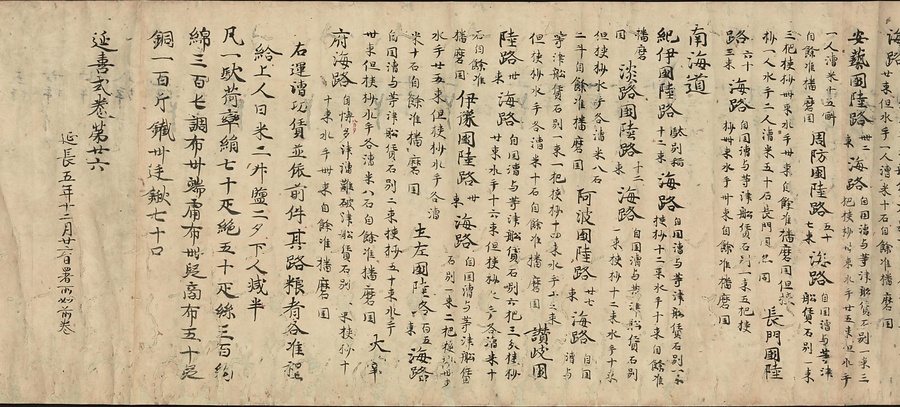 海路
廿束但水手一人漕米十石自餘准播磨国
安藝國陸路 卌二束 海路 自国漕与等津船賃石別一束三把挾杪卌束水手卅五束但水手
一人漕米十五斛自餘准播磨国 周防国陸路 五十七束 海路 自国漕与等津船賃石別一束
三把挾杪卌束水手卅束自餘准播磨国但挾杪一人水手二人漕米五十石長門国同 長門國陸
路 六十三束 海路 自国漕与等津船賃石別一束五把挾杪卌束水手卅束自餘准播磨国
南海道
紀伊國陸路 駄別稲十二束 海路 自国漕与等津船賃石別一束挾杪十二束水手十束自餘准
播磨国 淡路國陸路 十二束 海路 自国漕与等津船賃石別一束挾杪十二束水手十束
但挾杪水手各漕米八石二斗自餘准播磨国 阿波國陸路 廿七束 海路 自国漕与
等津船賃石別一束一把挾杪十四束水手十二束但挾杪水手各漕米十石自餘准播磨国 讃岐国
陸路 卅束 海路 自国漕与等津船賃石別六把三分挾杪廿束水手十六束但挾杪水手各漕米十
石自餘准播磨国 伊豫國陸路 束 海路 石別一束二把挾杪卅束
水手廿五束但挾杪水手各漕米十石自餘准播磨国 土左國陸路 百五束 海路
自国漕与等津船賃石別二束挾杪五十束水手卅束但挾杪水手各漕米八石自餘准播磨国 大宰
府海路 自博多津漕難破津船賃石別束挾杪六十束水手卌束自餘准播磨国
右運漕功賃並依前件其路粮者各准程
給上人日米二升塩二夕下人減半
凡一駄荷率絹七十疋絁五十疋絲三百絇
綿三百屯調布卅端庸布卌段商布五十段
銅一百斤鐵卅廷鍬七十口
延喜式卷第廿六
延長五年十二月廿六日署所如前卷